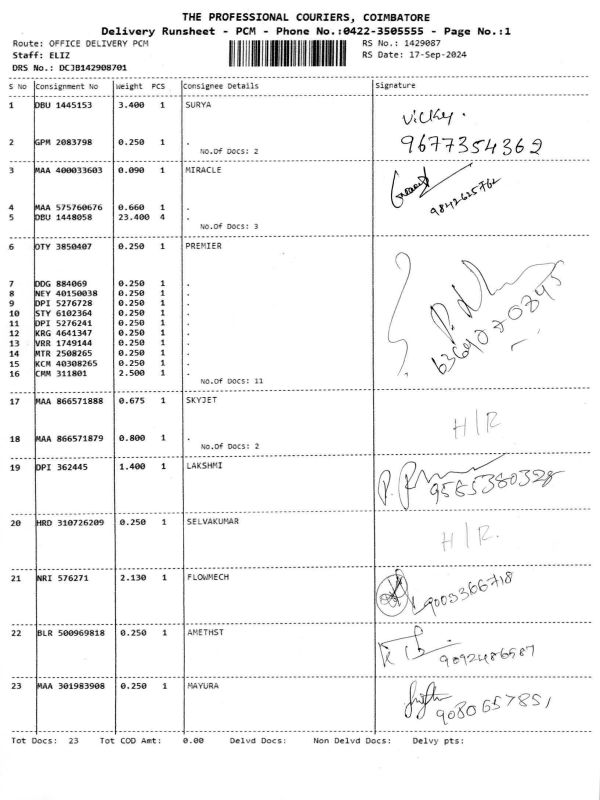 THE PROFESSIONAL COURIERS, COIMBATORE
Delivery Runsheet - PCM - Phone No.:0422-3505555 - Page No.:1
Route: OFFICE DELIVERY PCM RS No.: 1429087
Staff: ELIZ RS Date: 17-Sep-2024
DRS No.: DCJB142908701
S No Consignment No Weight PCS Consignee Details Signature
1 DBU 1445153 3.400 1 SURYA
Vicky.
2 GPM 2083798 0.250 1 . 9677354362
No.Of Docs: 2
3 MAA 400033603 0.090 1 MIRACLE
9842625762
4 MAA 575760676 0.660 1 .
5 DBU 1448058 23.400 4 .
No.Of Docs: 3
6 OTY 3850407 0.250 1 PREMIER
7 DDG 884069 0.250 1 .
8 NEY 40150038 0.250 1 .
9 DPI 5276728 0.250 1 .
10 STY 6102364 0.250 1 .
11 DPI 5276241 0.250 1 .
12 KRG 4641347 0.250 1 .
13 VRR 1749144 0.250 1 .
14 MTR 2508265 0.250 1 .
15 KCM 40308265 0.250 1 .
16 CMM 311801 2.500 1 .
No.Of Docs: 11
17 MAA 866571888 0.675 1 SKYJET
H/R
18 MAA 866571879 0.800 1 .
No.Of Docs: 2
19 DPI 362445 1.400 1 LAKSHMI
9585380328
20 HRD 310726209 0.250 1 SELVAKUMAR
H/R.
21 NRI 576271 2.130 1 FLOWMECH
9003366718
22 BLR 500969818 0.250 1 AMETHST
9092486587
23 MAA 301983908 0.250 1 MAYURA
9080657851
Tot Docs: 23 Tot COD Amt: 0.00 Delvd Docs: Non Delvd Docs: Delvy pts: